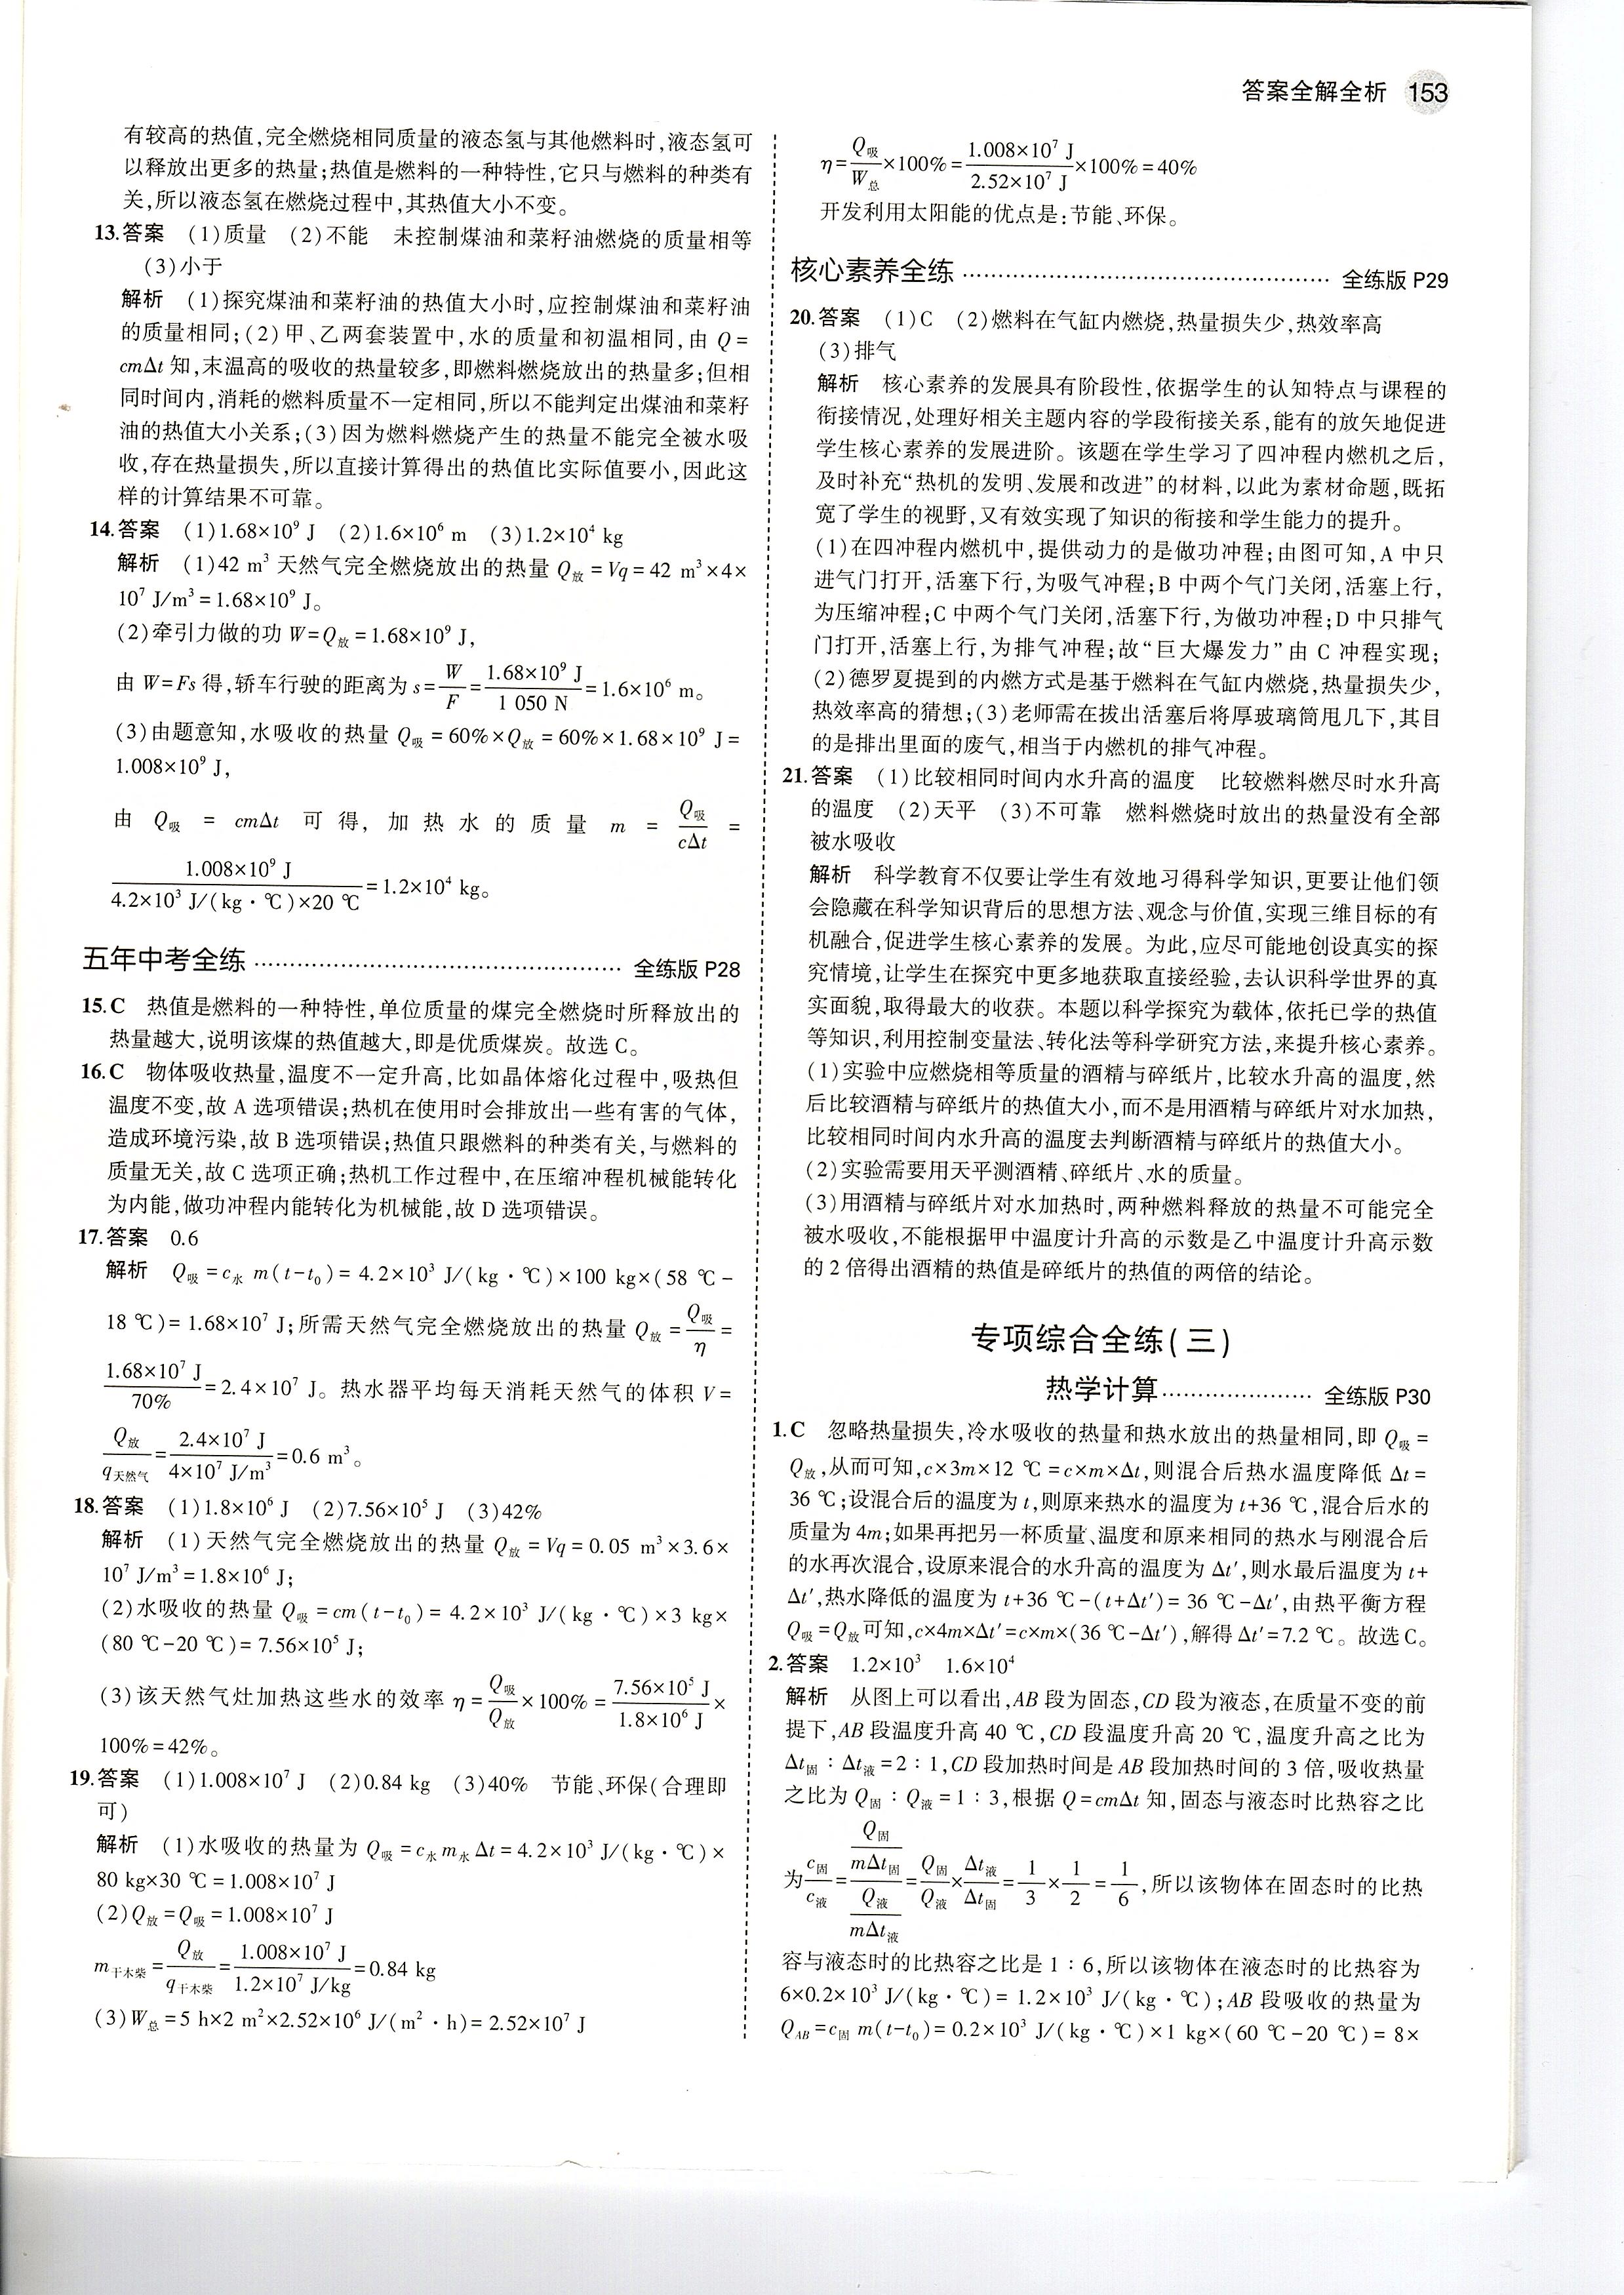 答案全解全析 153
有较高的热值,完全燃烧相同质量的液态氢与其他燃料时,液态氢可
以释放出更多的热量;热值是燃料的一种特性,它只与燃料的种类有
关,所以液态氢在燃烧过程中,其热值大小不变。
13.答案 (1)质量 (2)不能 未控制煤油和菜籽油燃烧的质量相等
(3)小于
解析 (1)探究煤油和菜籽油的热值大小时,应控制煤油和菜籽油
的质量相同;(2)甲、乙两套装置中,水的质量和初温相同,由 Q=
cmΔt 知,末温高的吸收的热量较多,即燃料燃烧放出的热量多;但相
同时间内,消耗的燃料质量不一定相同,所以不能判定出煤油和菜籽
油的热值大小关系;(3)因为燃料燃烧产生的热量不能完全被水吸
收,存在热量损失,所以直接计算得出的热值比实际值要小,因此这
样的计算结果不可靠。
14.答案 (1)1.68×10⁹ J (2)1.6×10⁶ m (3)1.2×10⁴ kg
解析 (1)42 m³ 天然气完全燃烧放出的热量 Q放=Vq=42 m³×4×
10⁷ J/m³=1.68×10⁹ J。
(2)牵引力做的功 W=Q放=1.68×10⁹ J,
由 W=Fs 得,轿车行驶的距离为 s=W/F=1.68×10⁹ J/1 050 N=1.6×10⁶ m。
(3)由题意知,水吸收的热量 Q吸=60%×Q放=60%×1.68×10⁹ J=
1.008×10⁹ J,
由 Q吸=cmΔt 可得,加热水的质量 m=Q吸/cΔt=
1.008×10⁹ J/4.2×10³ J/(kg·℃)×20 ℃=1.2×10⁴ kg。
五年中考全练 …… 全练版 P28
15.C 热值是燃料的一种特性,单位质量的煤完全燃烧时所释放出的
热量越大,说明该煤的热值越大,即是优质煤炭。故选 C。
16.C 物体吸收热量,温度不一定升高,比如晶体熔化过程中,吸热但
温度不变,故 A 选项错误;热机在使用时会排放出一些有害的气体,
造成环境污染,故 B 选项错误;热值只跟燃料的种类有关,与燃料的
质量无关,故 C 选项正确;热机工作过程中,在压缩冲程机械能转化
为内能,做功冲程内能转化为机械能,故 D 选项错误。
17.答案 0.6
解析 Q吸=c水 m(t-t₀)=4.2×10³ J/(kg·℃)×100 kg×(58 ℃-
18 ℃)=1.68×10⁷ J;所需天然气完全燃烧放出的热量 Q放=Q吸/η=
1.68×10⁷ J/70%=2.4×10⁷ J。热水器平均每天消耗天然气的体积 V=
Q放/q天然气=2.4×10⁷ J/4×10⁷ J/m³=0.6 m³。
18.答案 (1)1.8×10⁶ J (2)7.56×10⁵ J (3)42%
解析 (1)天然气完全燃烧放出的热量 Q放=Vq=0.05 m³×3.6×
10⁷ J/m³=1.8×10⁶ J;
(2)水吸收的热量 Q吸=cm(t-t₀)=4.2×10³ J/(kg·℃)×3 kg×
(80 ℃-20 ℃)=7.56×10⁵ J;
(3)该天然气灶加热这些水的效率 η=Q吸/Q放×100%=7.56×10⁵ J/1.8×10⁶ J×
100%=42%。
19.答案 (1)1.008×10⁷ J (2)0.84 kg (3)40% 节能、环保(合理即
可)
解析 (1)水吸收的热量为 Q吸=c水m水Δt=4.2×10³ J/(kg·℃)×
80 kg×30 ℃=1.008×10⁷ J
(2)Q放=Q吸=1.008×10⁷ J
m干木柴=Q放/q干木柴=1.008×10⁷ J/1.2×10⁷ J/kg=0.84 kg
(3)W总=5 h×2 m²×2.52×10⁶ J/(m²·h)=2.52×10⁷ J
η=Q吸/W总×100%=1.008×10⁷ J/2.52×10⁷ J×100%=40%
开发利用太阳能的优点是:节能、环保。
核心素养全练 …… 全练版 P29
20.答案 (1)C (2)燃料在气缸内燃烧,热量损失少,热效率高
(3)排气
解析 核心素养的发展具有阶段性,依据学生的认知特点与课程的
衔接情况,处理好相关主题内容的学段衔接关系,能有的放矢地促进
学生核心素养的发展进阶。该题在学生学习了四冲程内燃机之后,
及时补充“热机的发明、发展和改进”的材料,以此为素材命题,既拓
宽了学生的视野,又有效实现了知识的衔接和学生能力的提升。
(1)在四冲程内燃机中,提供动力的是做功冲程;由图可知,A 中只
进气门打开,活塞下行,为吸气冲程;B 中两个气门关闭,活塞上行,
为压缩冲程;C 中两个气门关闭,活塞下行,为做功冲程;D 中只排气
门打开,活塞上行,为排气冲程;故“巨大爆发力”由 C 冲程实现;
(2)德罗夏提到的内燃方式是基于燃料在气缸内燃烧,热量损失少,
热效率高的猜想;(3)老师需在拔出活塞后将厚玻璃筒甩几下,其目
的是排出里面的废气,相当于内燃机的排气冲程。
21.答案 (1)比较相同时间内水升高的温度 比较燃料燃尽时水升高
的温度 (2)天平 (3)不可靠 燃料燃烧时放出的热量没有全部
被水吸收
解析 科学教育不仅要让学生有效地习得科学知识,更要让他们领
会隐藏在科学知识背后的思想方法、观念与价值,实现三维目标的有
机融合,促进学生核心素养的发展。为此,应尽可能地创设真实的探
究情境,让学生在探究中更多地获取直接经验,去认识科学世界的真
实面貌,取得最大的收获。本题以科学探究为载体,依托已学的热值
等知识,利用控制变量法、转化法等科学研究方法,来提升核心素养。
(1)实验中应燃烧相等质量的酒精与碎纸片,比较水升高的温度,然
后比较酒精与碎纸片的热值大小,而不是用酒精与碎纸片对水加热,
比较相同时间内水升高的温度去判断酒精与碎纸片的热值大小。
(2)实验需要用天平测酒精、碎纸片、水的质量。
(3)用酒精与碎纸片对水加热时,两种燃料释放的热量不可能完全
被水吸收,不能根据甲中温度计升高的示数是乙中温度计升高示数
的 2 倍得出酒精的热值是碎纸片的热值的两倍的结论。
专项综合全练(三)
热学计算 …… 全练版 P30
1.C 忽略热量损失,冷水吸收的热量和热水放出的热量相同,即 Q吸=
Q放,从而可知,c×3m×12 ℃=c×m×Δt,则混合后热水温度降低 Δt=
36 ℃;设混合后的温度为 t,则原来热水的温度为 t+36 ℃,混合后水的
质量为 4m;如果再把另一杯质量、温度和原来相同的热水与刚混合后
的水再次混合,设原来混合的水升高的温度为 Δt′,则水最后温度为 t+
Δt′,热水降低的温度为 t+36 ℃-(t+Δt′)=36 ℃-Δt′,由热平衡方程
Q吸=Q放可知,c×4m×Δt′=c×m×(36 ℃-Δt′),解得 Δt′=7.2 ℃。故选 C。
2.答案 1.2×10³ 1.6×10⁴
解析 从图上可以看出,AB 段为固态,CD 段为液态,在质量不变的前
提下,AB 段温度升高 40 ℃,CD 段温度升高 20 ℃,温度升高之比为
Δt固:Δt液=2:1,CD 段加热时间是 AB 段加热时间的 3 倍,吸收热量
之比为 Q固:Q液=1:3,根据 Q=cmΔt 知,固态与液态时比热容之比
为 c固/c液=(Q固/mΔt固)/(Q液/mΔt液)=Q固/Q液×Δt液/Δt固=1/3×1/2=1/6,所以该物体在固态时的比热
容与液态时的比热容之比是 1:6,所以该物体在液态时的比热容为
6×0.2×10³ J/(kg·℃)=1.2×10³ J/(kg·℃);AB 段吸收的热量为
Q_AB=c固 m(t-t₀)=0.2×10³ J/(kg·℃)×1 kg×(60 ℃-20 ℃)=8×